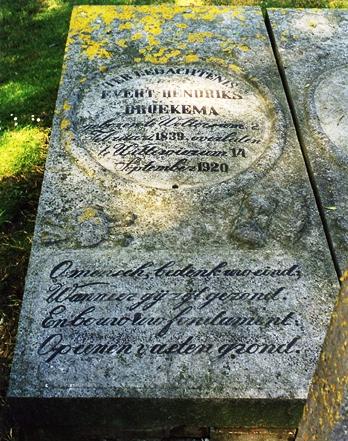 TER GEDACHTENIS
EVERT HENDRIKS
DROEKEMA
2
1839, overleden
te Wittewierum 14
September 1920
O mensch, bedenk uw eind,
Wanneer gij zijt gezond.
En bouw uw fondament,
Op eenen vasten grond.